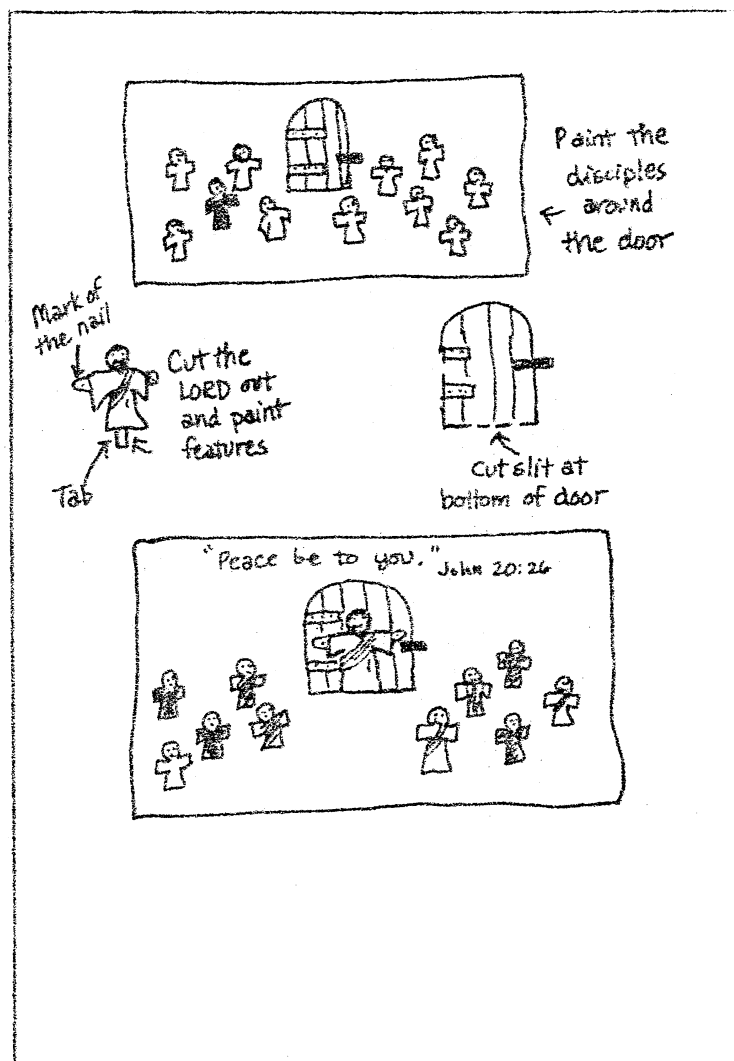 Paint the
disciples
around
the door
Mark of
the nail
Cut the
LORD out
and paint
features
Tab
Cut slit at
bottom of door
"Peace be to you." John 20:26